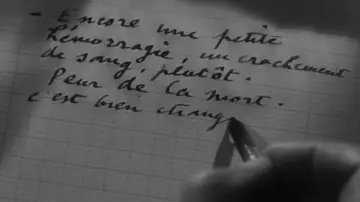 - Encore une petite
hémorragie, un crachement
de sang, plutôt.
Peur de la mort.
c'est bien étrang